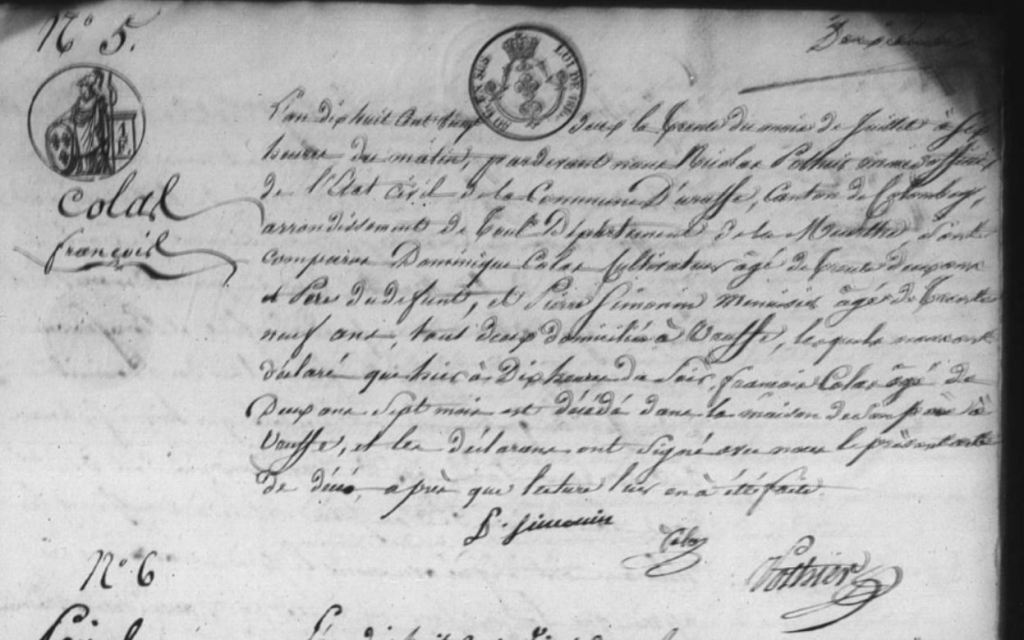 N° 5.
colas
françois
L'an dix huit cent vingt deux le trente du mois de Juillet à Sept
heures du matin, pardevant nous Nicolas Pothier maire officier
de l'Etat Civil de la Commune D'uruffe, Canton de Colombey,
arrondissement de Toul Département de la Meurthe, Sont
comparus Dominique Colas Cultivateur âgé de trente deux ans
et Pere du defunt, et Pierre Simonin Menuisier âgé de trente
neuf ans, tous deux domiciliés à Uruffe, lesquels nous ont
déclaré que hier à Dix heures du Soir, françois Colas âgé de
Deux ans Sept mois est décédé dans la maison de Son père à
Uruffe, et les déclarans ont Signé avec nous le présent acte
de décé, après que lecture leur en à été faite.
P. Simonin
Colas
Pothier
N° 6
L'an dix huit cent vingt deux